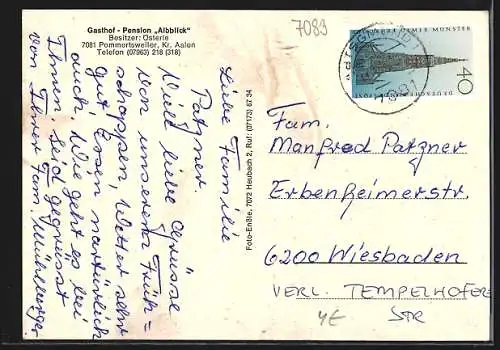 Gasthof - Pension „Albblick"
Besitzer: Osterle
7081 Pommertsweiler, Kr. Aalen
Telefon (07963) 218 (318)
Liebe Familie
Patzner
Viele liebe Grüsse
von unserem Früh=
schoppen, Wetter sehr
gut, Essen natürlich
auch. Wie geht es bei
Ihnen. Seid gegrüsst
von Ihrer Fam. Mühlberger
Foto-Enßle, 7072 Heubach 2, Ruf: (07173) 67 34
7083
JAHRE ULMER MÜNSTER
DEUTSCHE BUNDESPOST
40
Fam.
Manfred Patzner
Erbenheimerstr.
6200 Wiesbaden
VERL. TEMPELHOFER
STR